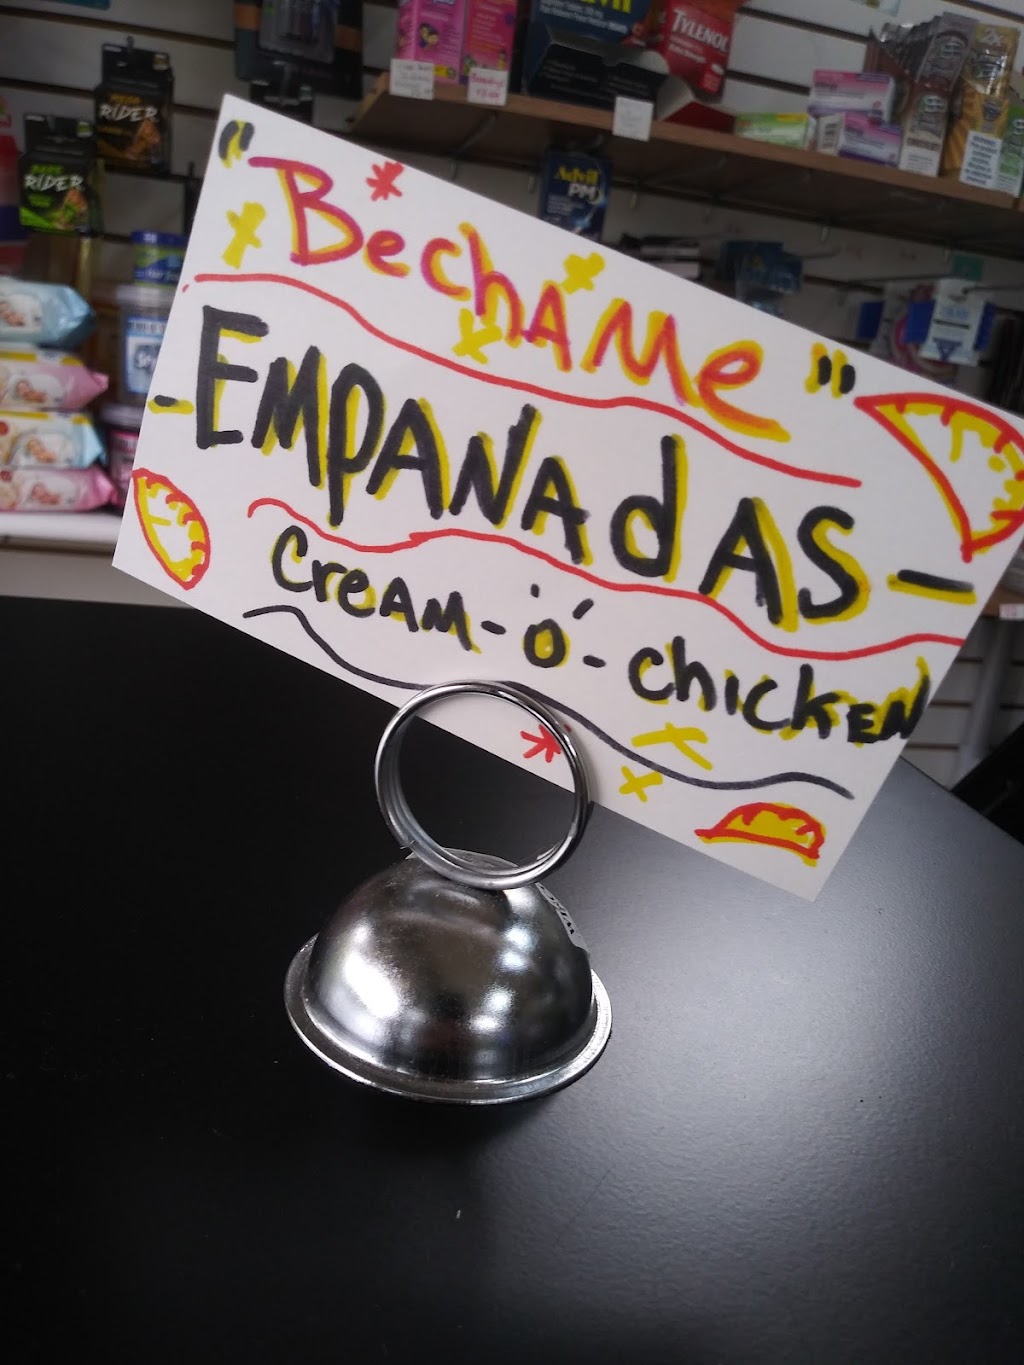 TYLENOL
RIDER
RIDER
Advil
PM
"BechAMe"
-EMPANAdAS-
CreAM-Ö-ChICKEN